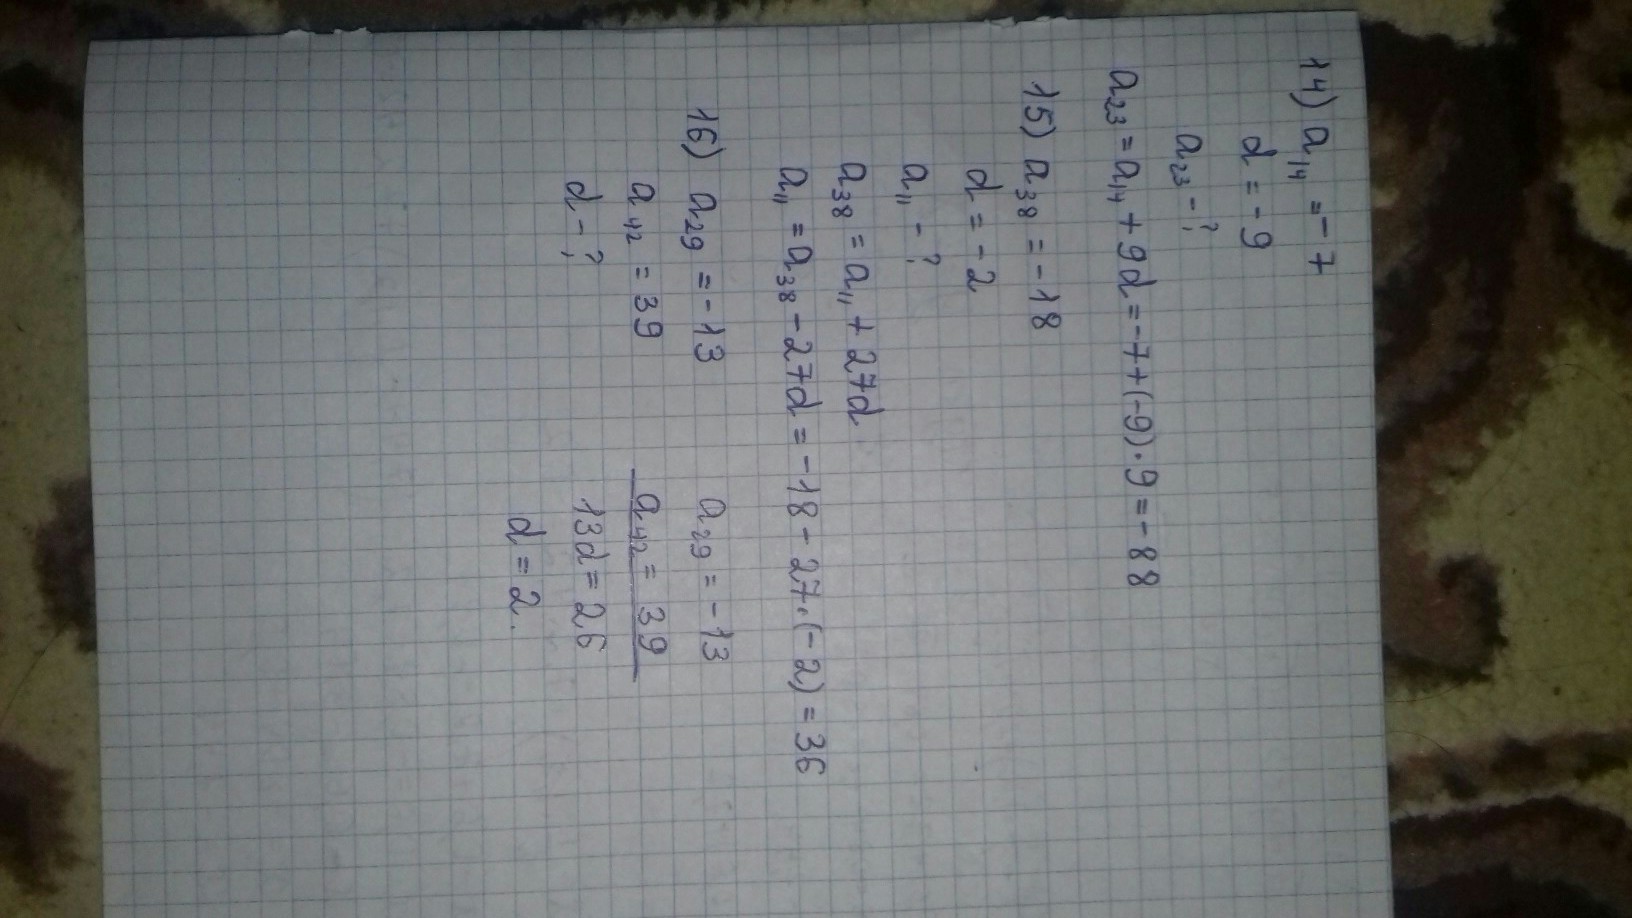 14) a₁₄ = -7
d = -9
a₂₃ - ?
a₂₃ = a₁₄ + 9d = -7+(-9)·9 = -88
15) a₃₈ = -18
d = -2
a₁₁ - ?
a₃₈ = a₁₁ + 27d
a₁₁ = a₃₈ - 27d = -18 - 27·(-2) = 36
16) a₂₉ = -13
a₄₂ = 39
d - ?
a₂₉ = -13
a₄₂ = 39
13d = 26
d = 2.